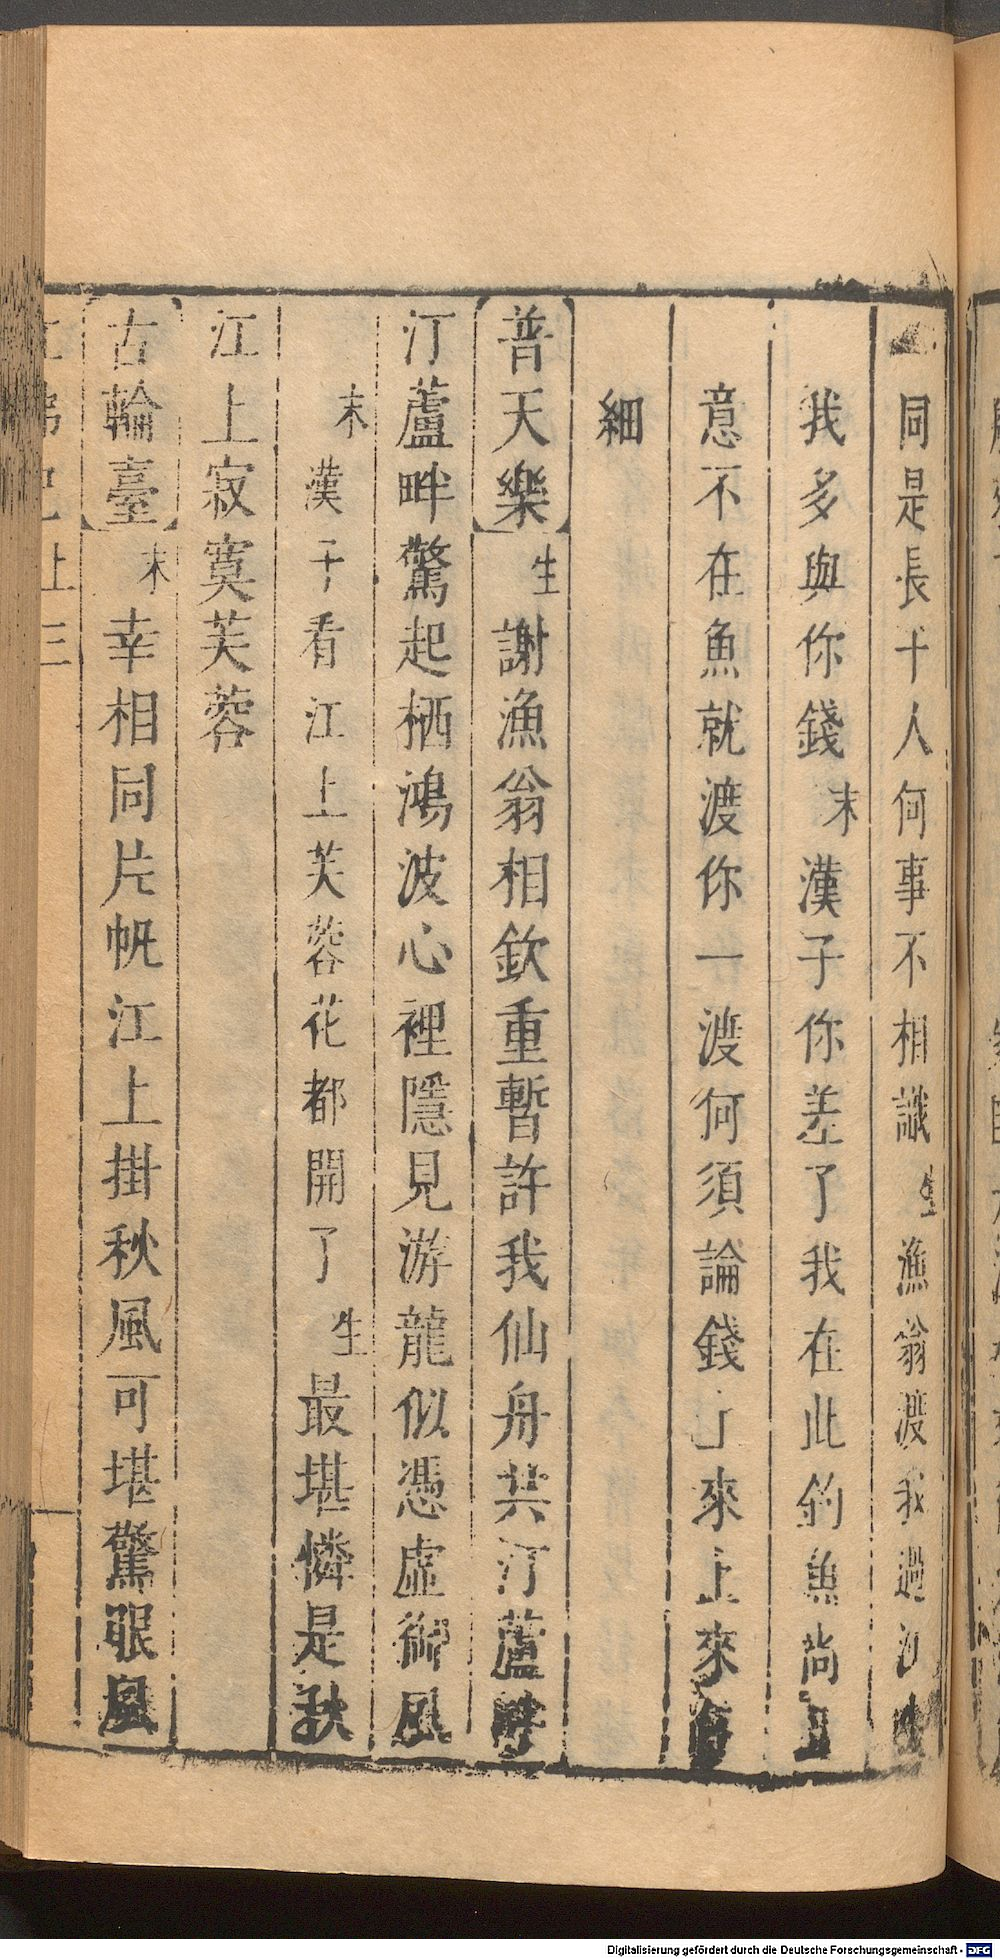 同是長干人何事不相識生漁翁渡我過江
我多與你錢末漢子你差了我在此釣魚尚且
意不在魚就渡你一渡何須論錢上來上來
細
【普天樂】生謝漁翁相欽重暫許我仙舟共汀蘆畔
汀蘆畔驚起栖鴻波心裡隱見游龍似憑虛御風
末漢子看江上芙蓉花都開了生最堪憐是秋
江上寂寞芙蓉
【古輪臺】末幸相同片帆江上掛秋風可堪驚眼
Digitalisierung gefördert durch die Deutsche Forschungsgemeinschaft - DFG